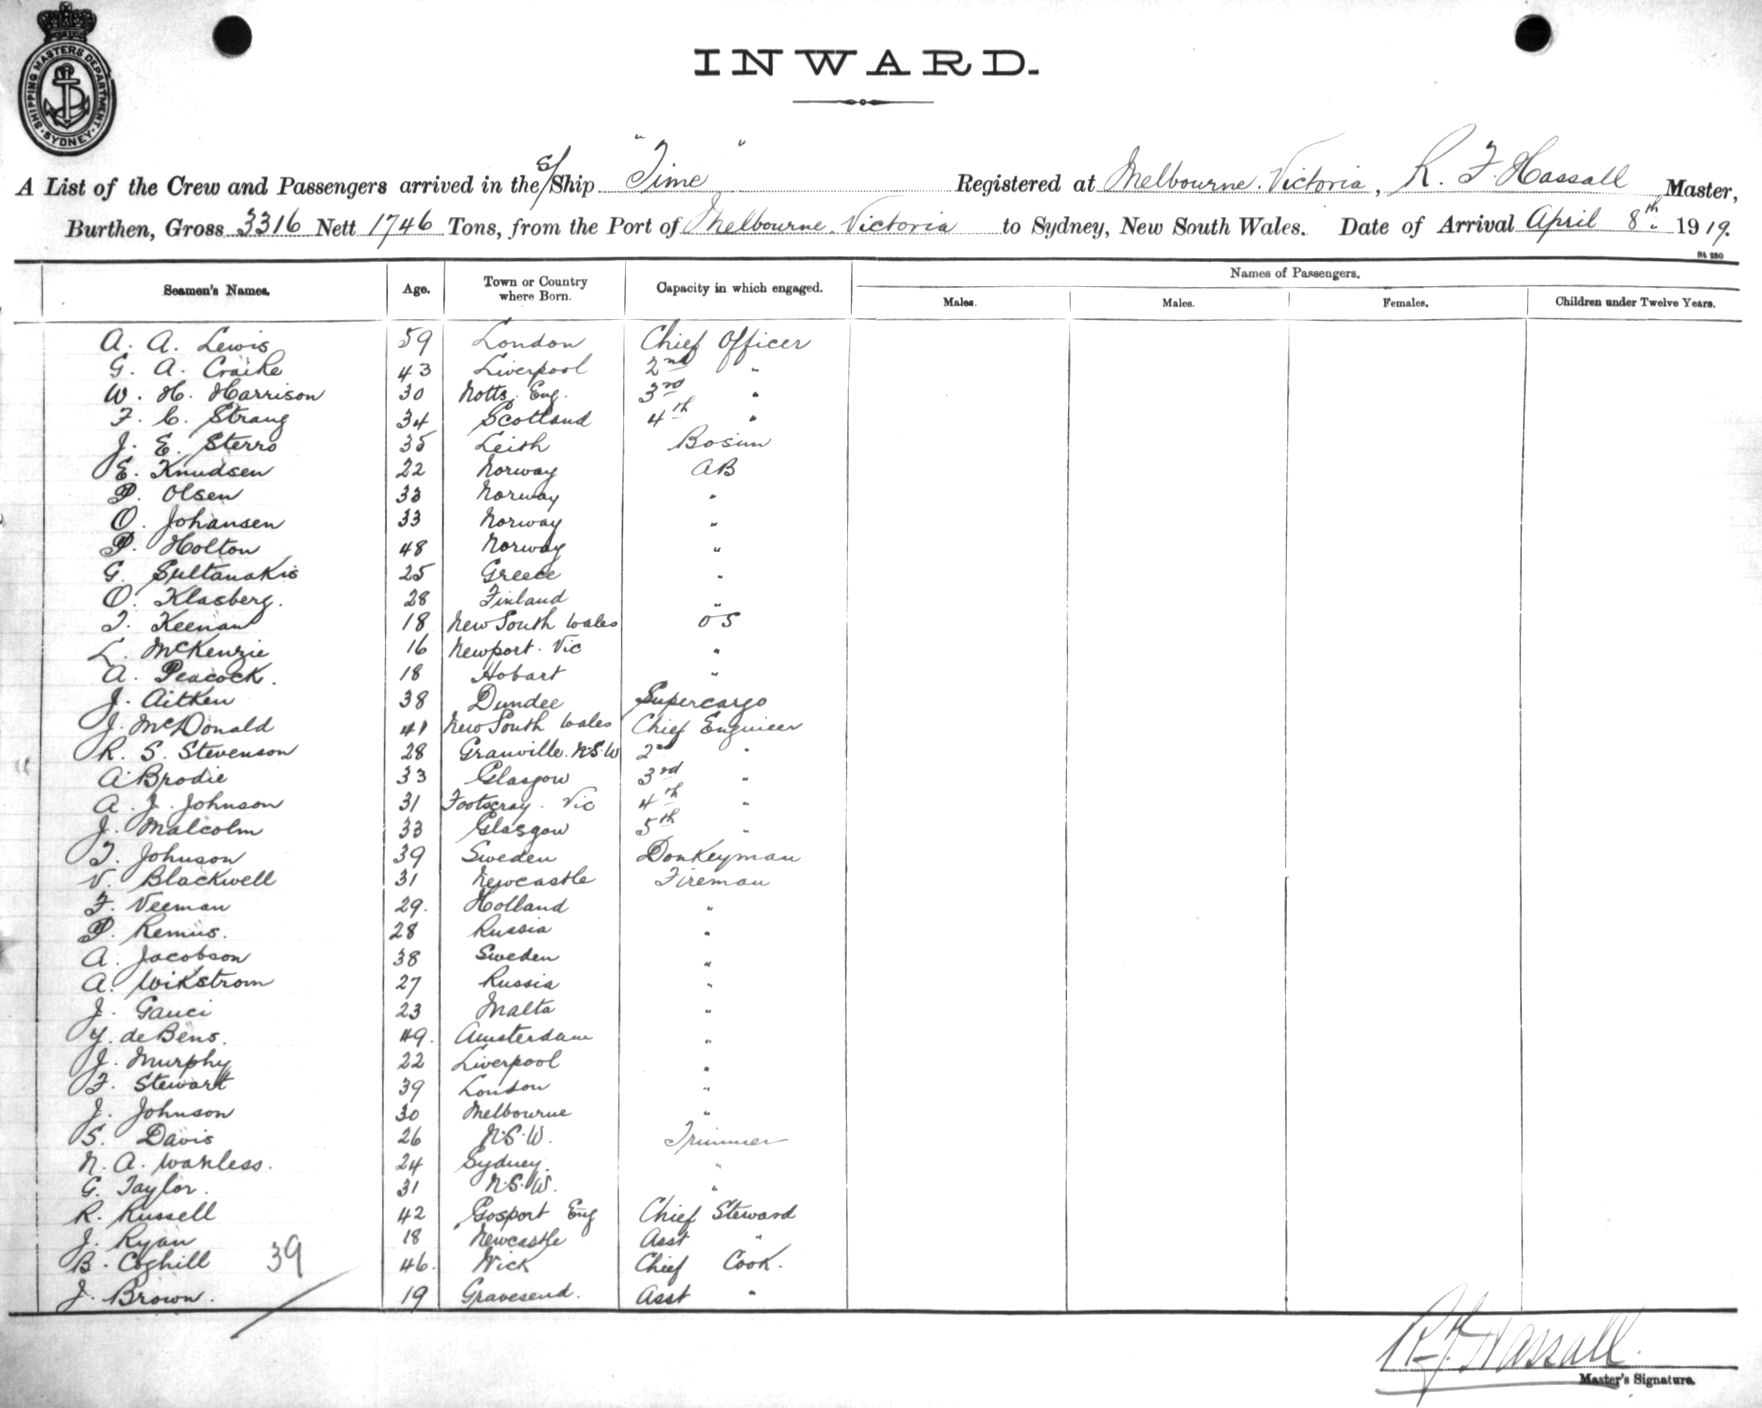 SHIPPING MASTERS DEPARTMENT
SYDNEY
INWARD.
A List of the Crew and Passengers arrived in the S/Ship "Time" Registered at Melbourne. Victoria, R. F. Hassall Master,
Burthen, Gross 3316 Nett 1746 Tons, from the Port of Melbourne. Victoria to Sydney, New South Wales. Date of Arrival April 8th. 1919.
St 250
Seamen's Names. Age. Town or Country where Born. Capacity in which engaged. Names of Passengers.
Males. Males. Females. Children under Twelve Years.
A. A. Lewis 59 London Chief Officer
G. A. Craike 43 Liverpool 2nd "
W. H. Harrison 30 Notts. Eng. 3rd "
F. C. Strang 34 Scotland 4th "
J. E. Sterro 35 Leith Bosun
E. Knudsen 22 Norway AB
P. Olsen 33 Norway "
O. Johansen 33 Norway "
P. Holton 48 Norway "
G. Sultanakis 25 Greece "
O. Klasberg. 28 Finland "
T. Keenan 18 New South Wales OS
L. McKenzie 16 Newport. Vic "
A. Peacock. 18 Hobart "
J. Aitken 38 Dundee Supercargo
J. McDonald 41 New South Wales Chief Engineer
R. S. Stevenson 28 Granville. N.S.W 2nd "
A Brodie 33 Glasgow 3rd "
A. J. Johnson 31 Footscray. Vic 4th "
J. Malcolm 33 Glasgow 5th "
T. Johnson 39 Sweden Donkeyman
V. Blackwell 31 Newcastle Fireman
F. Veeman 29. Holland "
P. Remus. 28 Russia "
A. Jacobson 38 Sweden "
A. Wikstrom 27 Russia "
J. Gauci 23 Malta "
Y. de Bens. 49. Amsterdam "
J. Murphy 22 Liverpool "
F. Stewart 39 London "
J. Johnson 30 Melbourne "
S. Davis 26 N.S.W. Trimmer
N. A. Wanless. 24 Sydney. "
G. Taylor. 31 N.S.W. "
R. Russell 42 Gosport Eng Chief Steward
J. Ryan 18 Newcastle Asst "
B. Coghill 39 46. Wick Chief Cook.
J. Brown. 19 Gravesend. Asst "
R. F. Hassall.
Master's Signature.